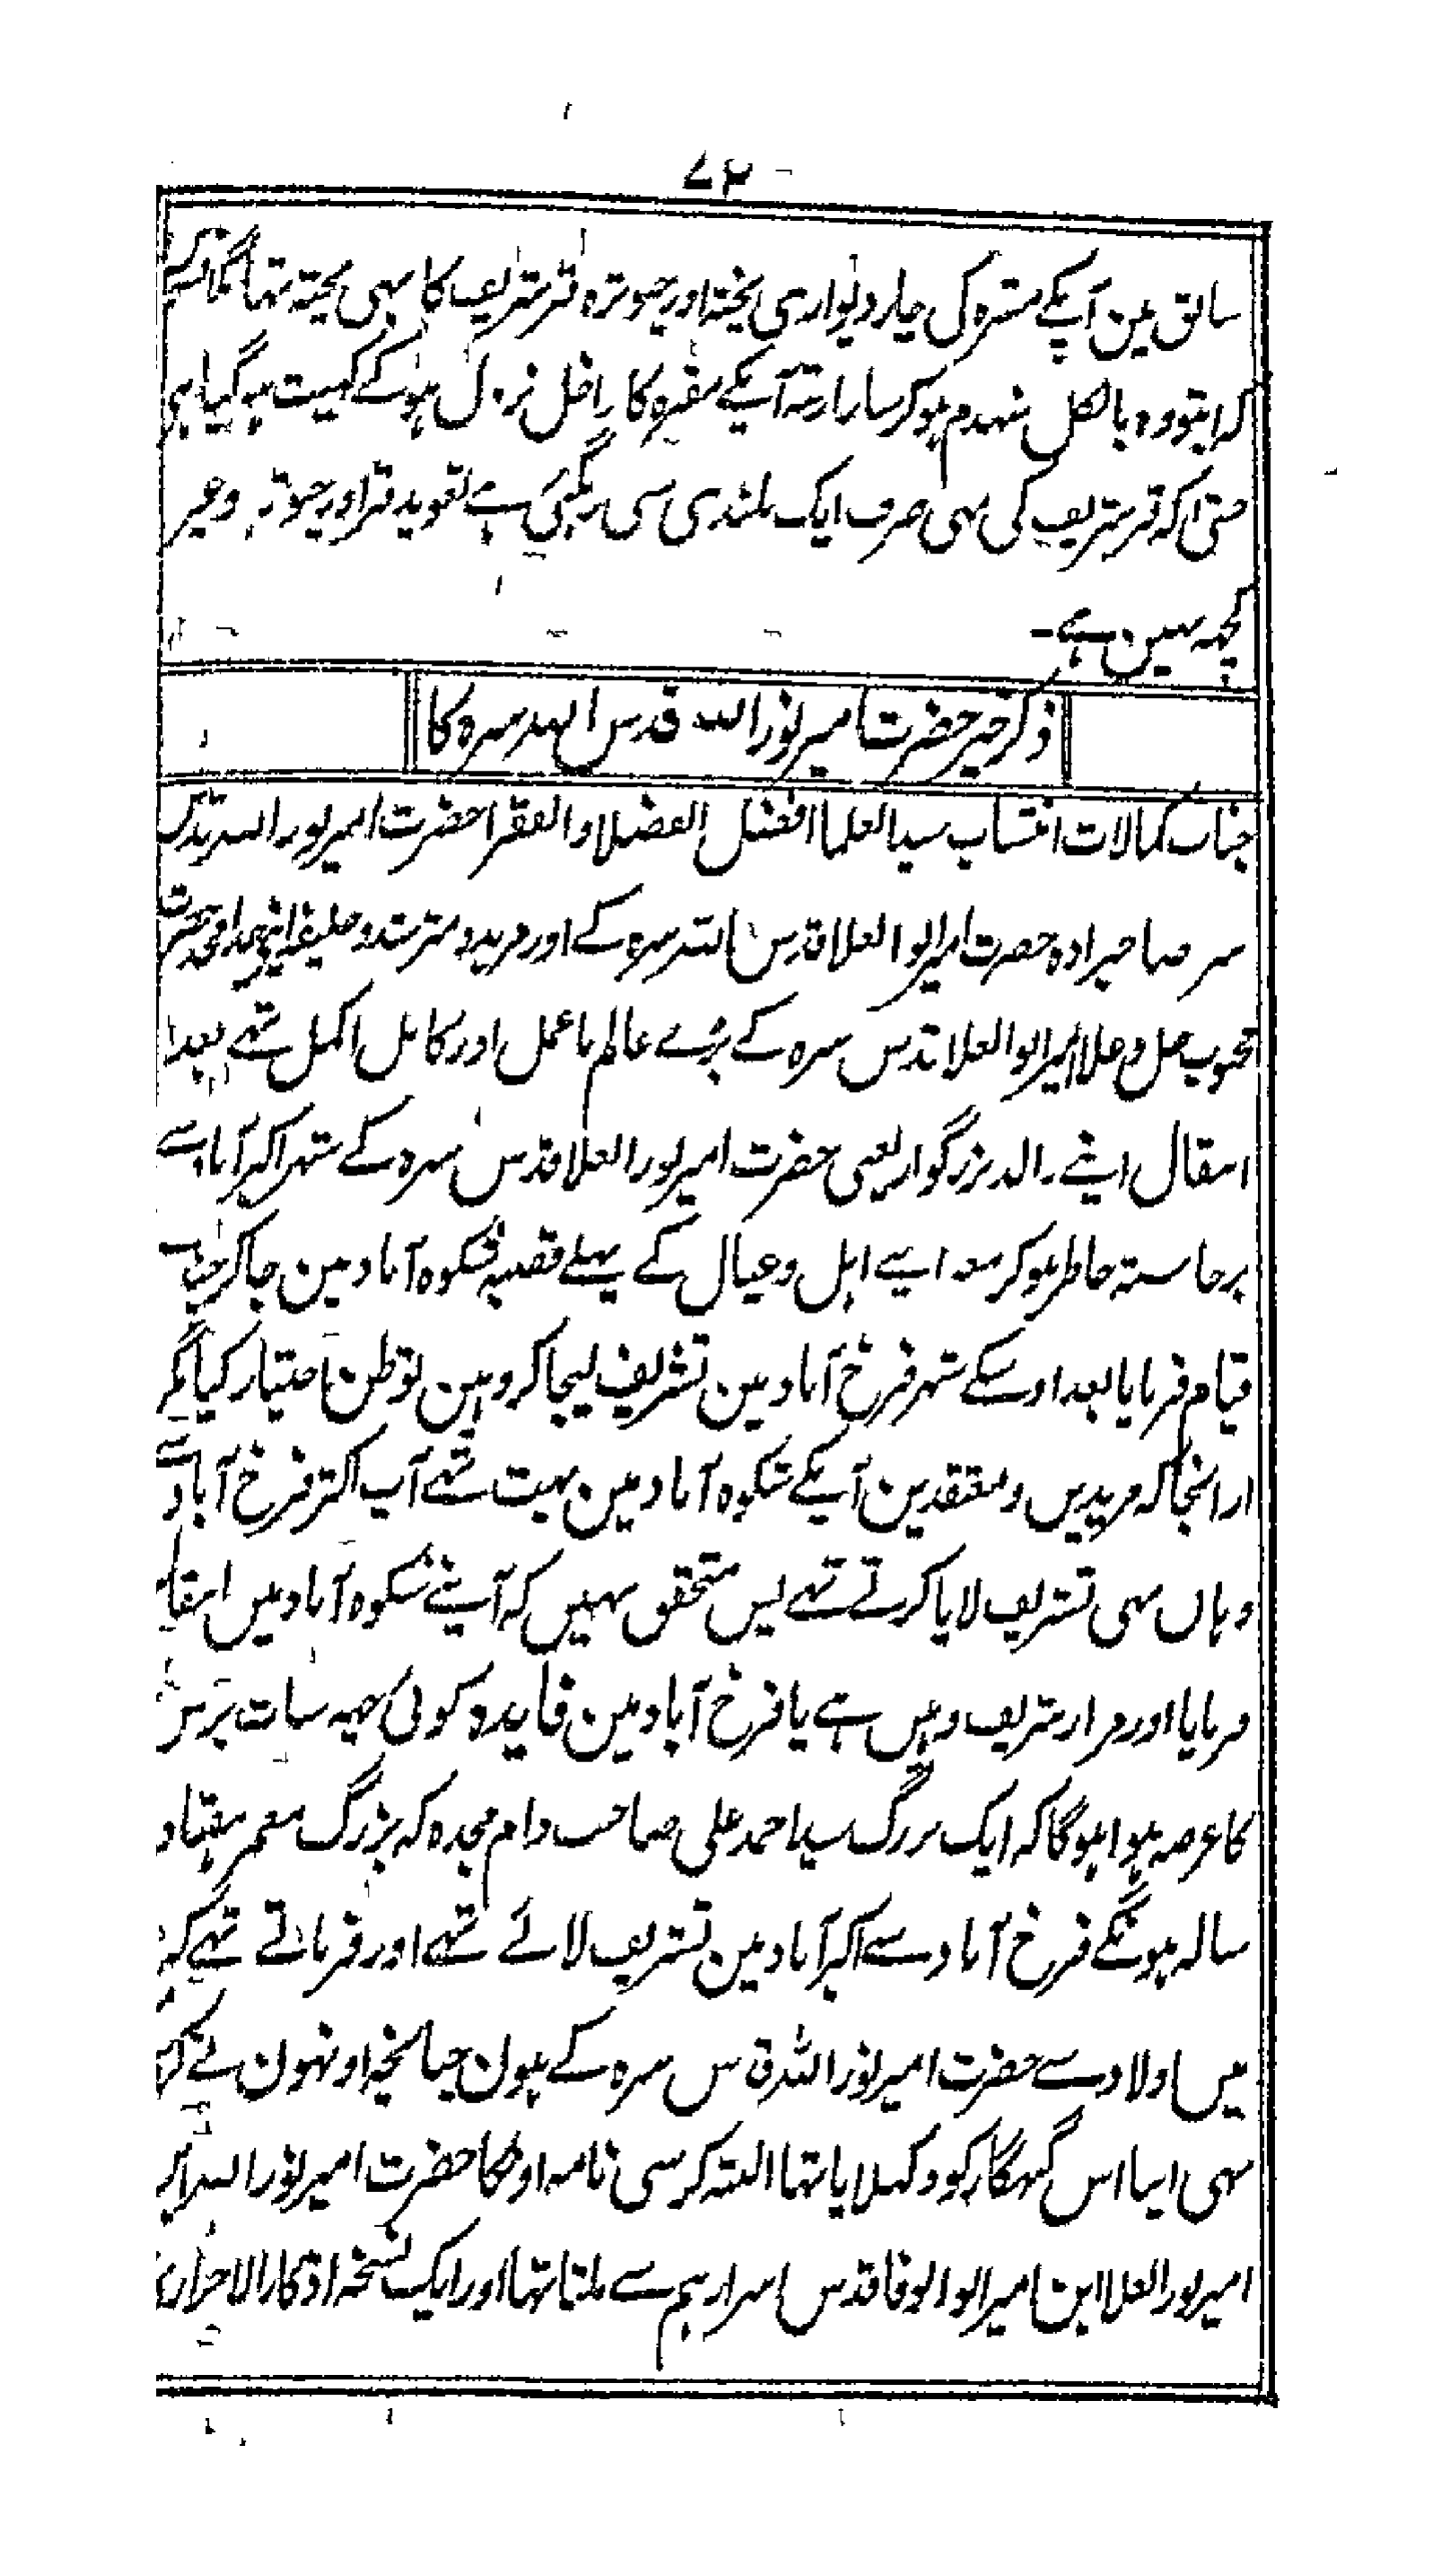 ۷۲
سابق مین آپکے مقبرہ کی چار دیواری پختہ اور چبوترہ قبر شریف کا بہی پختہ تہا
کہ ابتو وہ بالکل منہدم ہوکر سارا رقبہ آپکے مقبرہ کا داخل نزول ہوکے کہیت ہوگیا ہی
حتی اکہ قبر شریف کی بہی صرف ایک بلندی سی رہگئی ہے تعوید قبر اور چبوترہ وغیر
کچہ نہین ہے۔
ذکر خیر حضرت امیر نور اللہ قدس اللہ سرہ کا
جناب کمالات انتساب سید العلما افضل الفضلا و الفقرا حضرت امیر نور اللہ قدس
سر صاحبزادہ حضرت امیر ابو العلا قدس اللہ سرہ کے اور مرید و مسترشد و خلیفہ اپنے
محبوب جل و علا امیر ابو العلا قدس سرہ کے بڑے عالم باعمل اور کامل اکمل تہے بعد
انتقال اپنے والد بزرگوار یعنی حضرت امیر نور العلا قدس سرہ کے شہر اکبر آباد سے
برخاستہ خاطر ہوکر معہ اپنے اہل و عیال کے پہلے قصبہ شکوہ آباد مین جاکر
قیام فرمایا بعد اوسکے شہر فرخ آباد مین تشریف لیجاکر وہین توطن اختیار کیا مگر
ازانجاکہ مریدین و معتقدین آپکے شکوہ آباد مین بہت تہے آپ اکثر فرخ آباد سے
وہاں بہی تشریف لایا کرتے تہے پس متحقق نہیں کہ آپنے شکوہ آباد میں انتقال
فرمایا اور مزار شریف وہیں ہے یا فرخ آباد مین فایدہ کوئی چہہ سات برس
کا عرصہ ہوا ہوگا کہ ایک بزرگ سید احمد علی صاحب دام مجدہ کہ بزرگ معمر ہفتاد
سالہ ہونگے فرخ آباد سے اکبر آباد مین تشریف لائے تہے اور فرماتے تہے کہ
میں اولاد سے حضرت امیر نور اللہ قدس سرہ کے ہون چنانچہ اونہون نے
بہی اپنا اس گنہگار کو دکہلایا تہا البتہ کرسی نامہ اونکا حضرت امیر نور اللہ ابن
امیر نور العلا ابن امیر ابو الوفا قدس اسرارہم سے ملتا تہا اور ایک نسخہ اذکار الاحرار